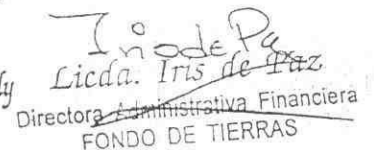 Licda. Iris de Paz
Directora Administrativa Financiera
FONDO DE TIERRAS